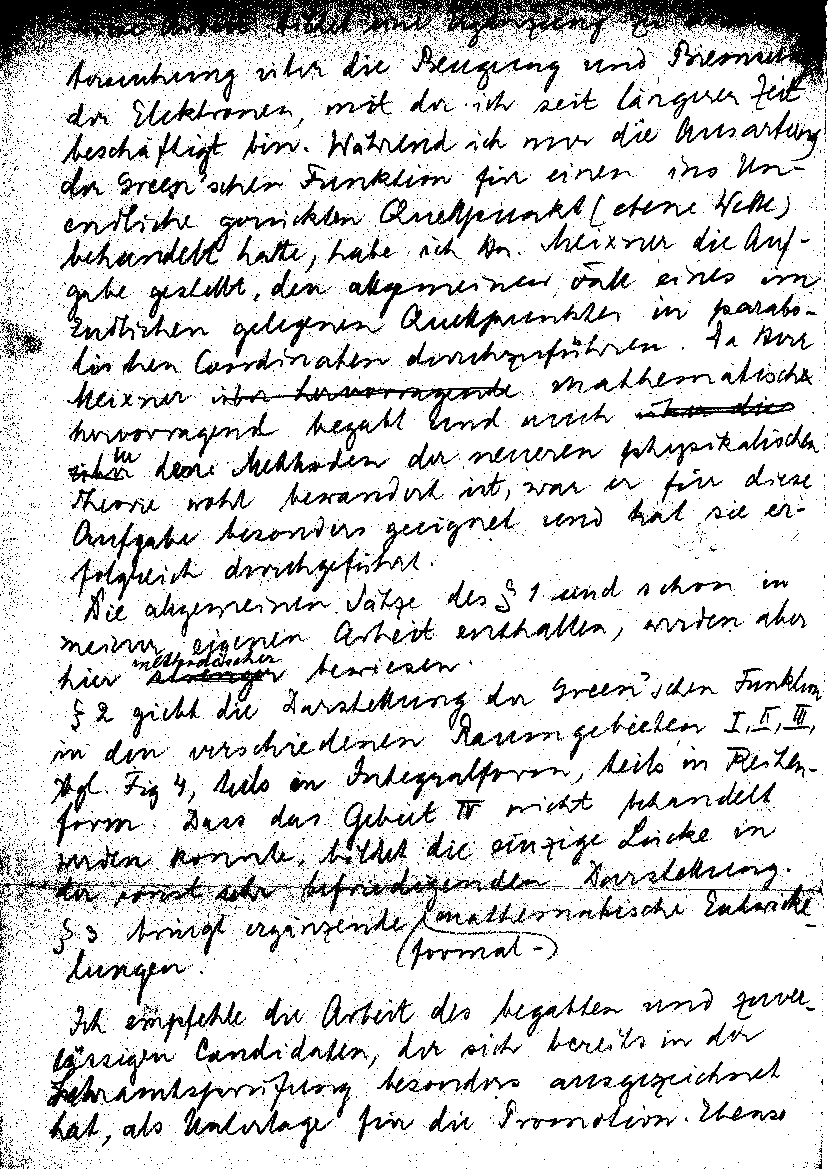 Arbeit bildet eine Ergänzung zu
tersuchung über die Beugung und Bremsung
der Elektronen, mit der ich seit längerer Zeit
beschäftigt bin. Während ich nur die Ausartung
der Green'schen Funktion für einen ins Un-
endliche gerückten Quellpunkt (ebene Welle)
behandelt hatte, habe ich Hn. Meixner die Auf-
gabe gestellt, den allgemeinen Fall eines im
Endlichen gelegenen Quellpunktes in parabo-
lischen Coordinaten durchzuführen. Da Herr
Meixner über hervorragende mathematisch
hervorragend begabt und auch über die
in den Methoden der neueren physikalischen
Theorie wohl bewandert ist, war er für diese
Aufgabe besonders geeignet und hat sie er-
folgreich durchgeführt.
Die allgemeinen Sätze des § 1 sind schon in
meiner eigenen Arbeit enthalten, werden aber
hier methodischer strenger bewiesen.
§ 2 giebt die Darstellung der Green'schen Funktion
in den verschiedenen Raumgebieten I, II, III,
vgl. Fig 4, teils in Integralform, teils in Reihen-
form. Dass das Gebiet IV nicht behandelt
werden konnte, bildet die einzige Lücke in
der sonst sehr befriedigenden Darstellung.
§ 3 bringt ergänzende mathematische Entwicke-
(formal-)
lungen.
Ich empfehle die Arbeit des begabten und zuver-
lässigen Candidaten, der sich bereits in der
Lehramtsprüfung besonders ausgezeichnet
hat, als Unterlage für die Promotion. Ebenso